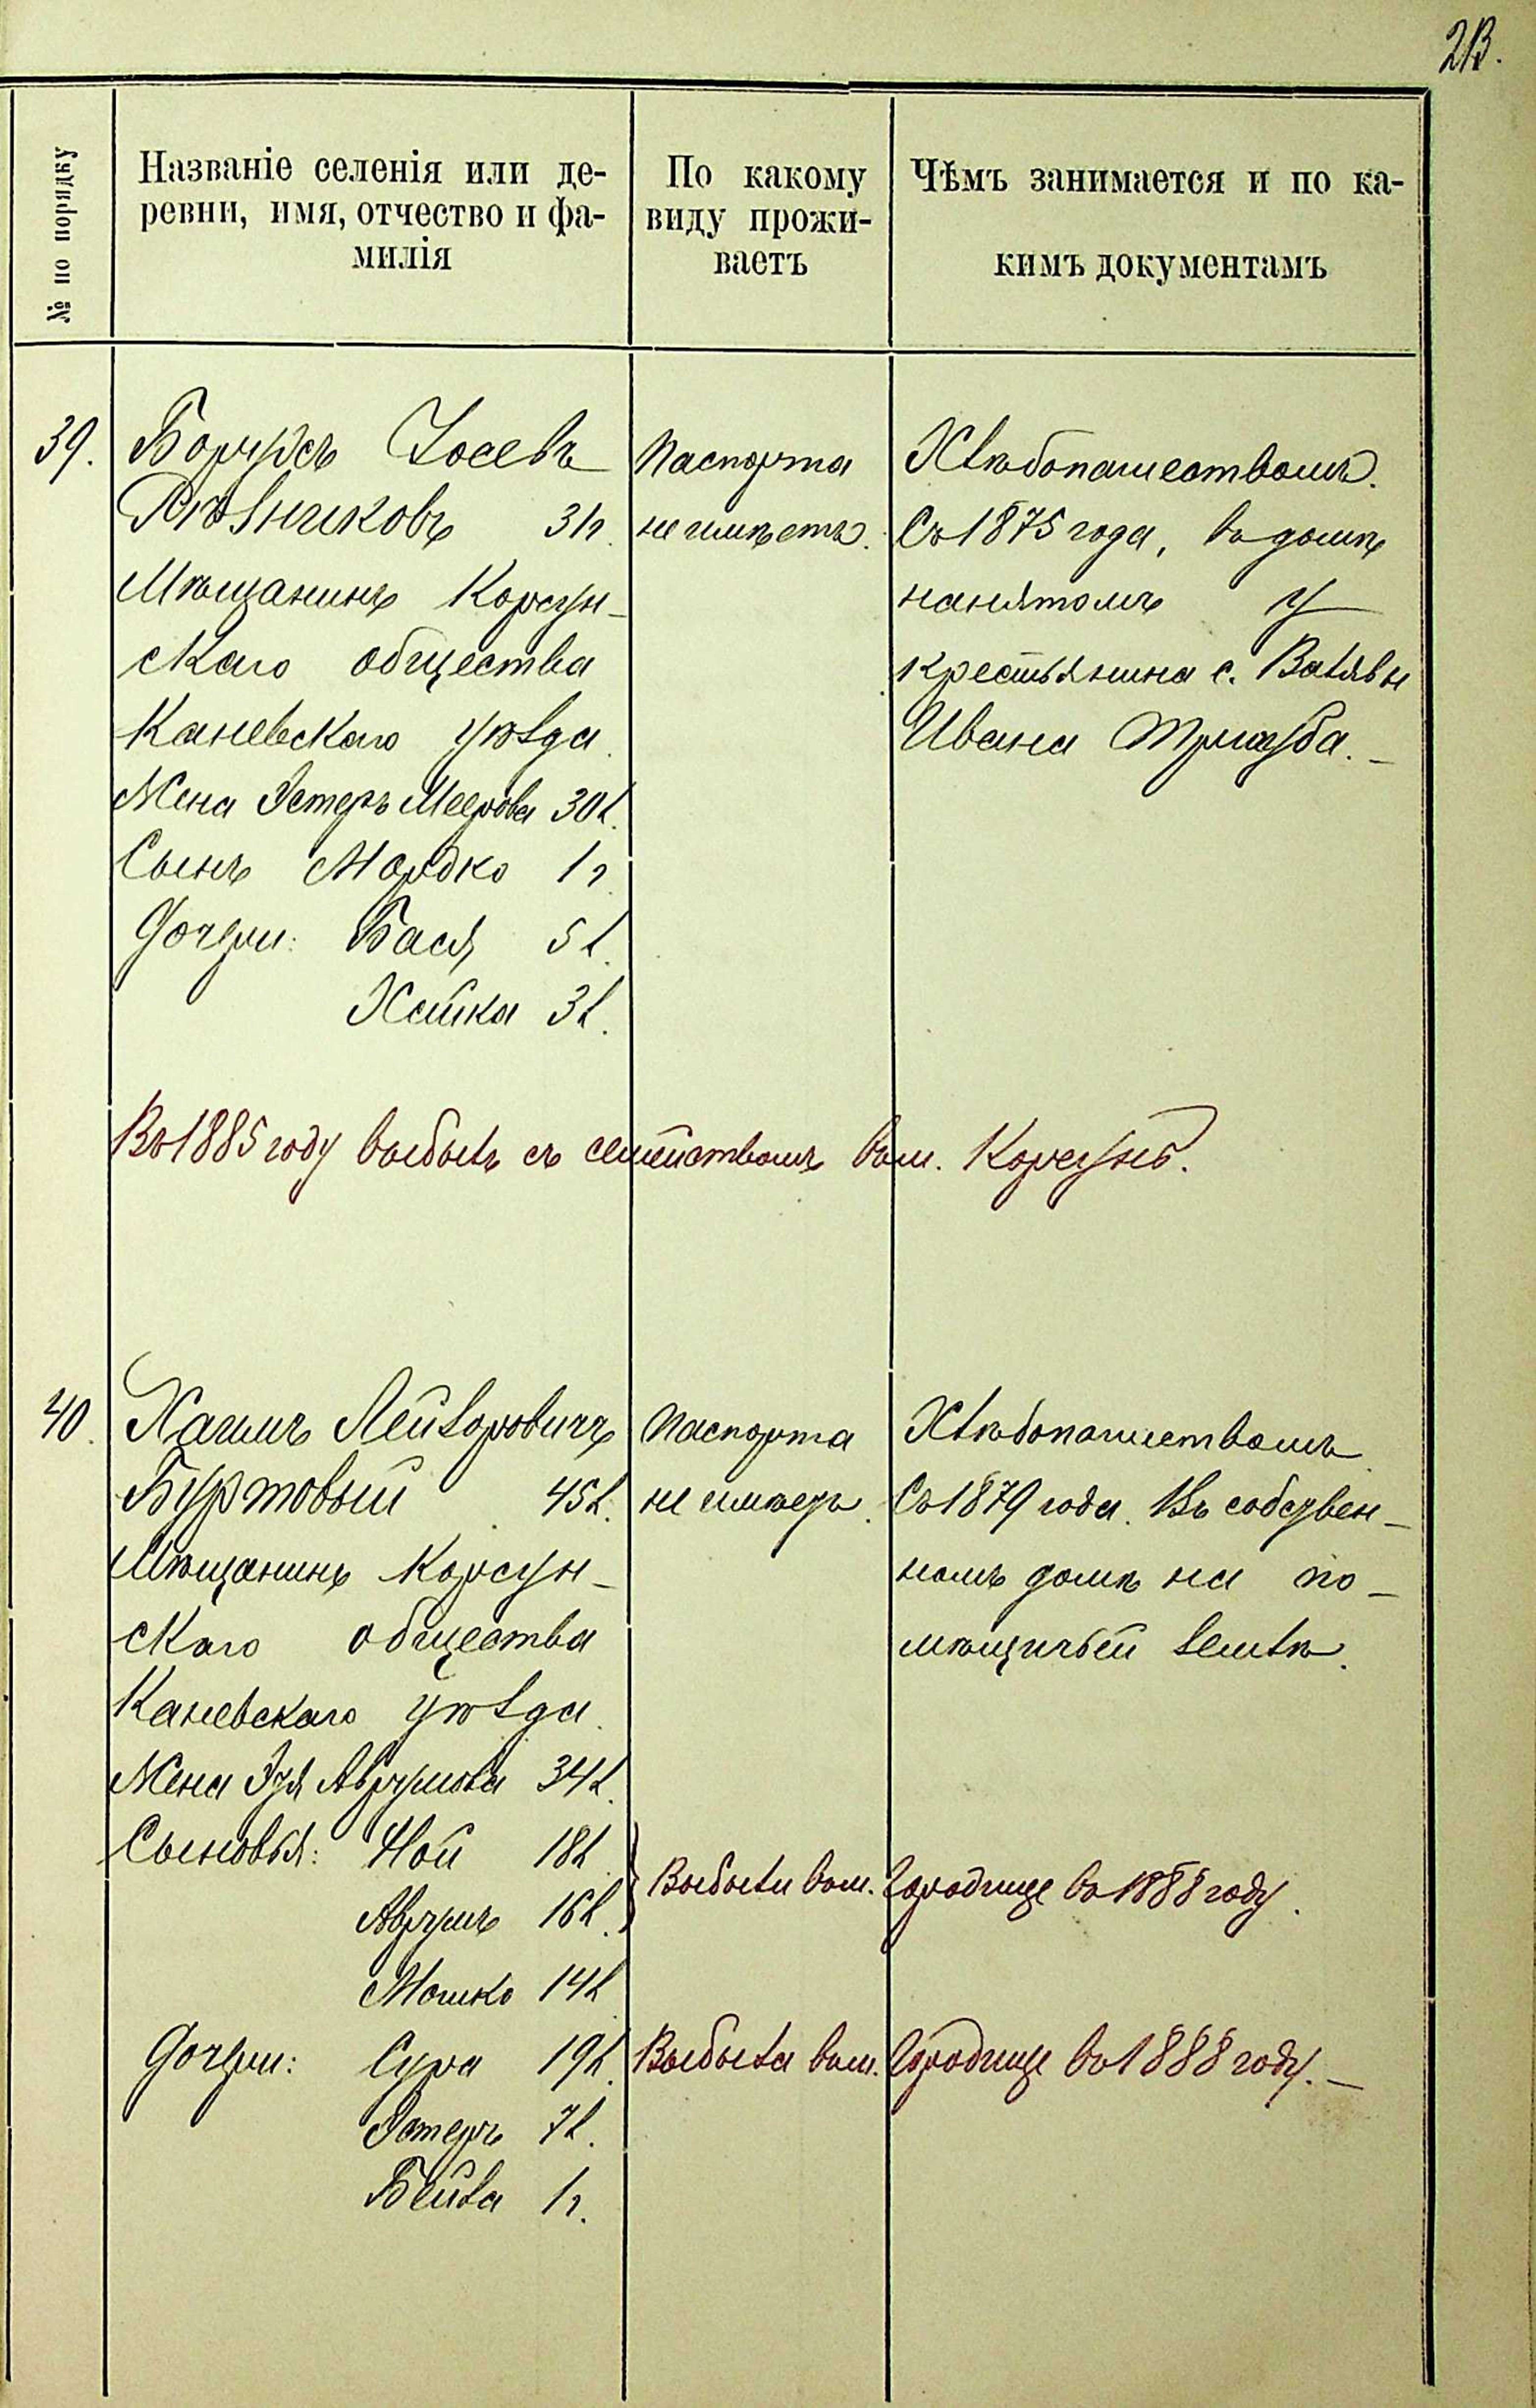 213.
№ по порядку
Названіе селенія или де-
ревни, имя, отчество и фа-
милія
По какому
виду прожи-
ваетъ
Чѣмъ занимается и по ка-
кимъ документамъ
39.
Борухъ Іосевъ
Рѣзниковъ 31г.
Мѣщанинъ Корсун-
скаго общества
Каневскаго уѣзда.
Жена Эстеръ Меерова 30л.
Сынъ Мордко 1г.
Дочери: Бася 5л.
Хайка 3л.
Паспорта
не имѣетъ.
Хлѣбопашествомъ.
Съ 1875 года, въ домѣ
нанятомъ у
крестьянина с. Валявы
Ивана
Въ 1885 году выбылъ съ семействомъ въ м. Корсунь.
40.
Хаимъ Лейзоровичъ
Буртовый 45л.
Мѣщанинъ Корсун-
скаго общества
Каневскаго уѣзда.
Жена Эдя Аврумова 34л.
Сыновья: Ной 18л.
Аврумъ 16л.
Мошко 14л.
Дочери: Сура 19л.
Эстеръ 7л.
Бейла 1г.
Паспорта
не имѣетъ.
Хлѣбопашествомъ
Съ 1879 года. Въ собствен-
номъ домѣ на по-
мѣщичьей землѣ.
Выбыли въ м. Городище въ 1888 году.
Выбыла въ м. Городище въ 1888 году.-